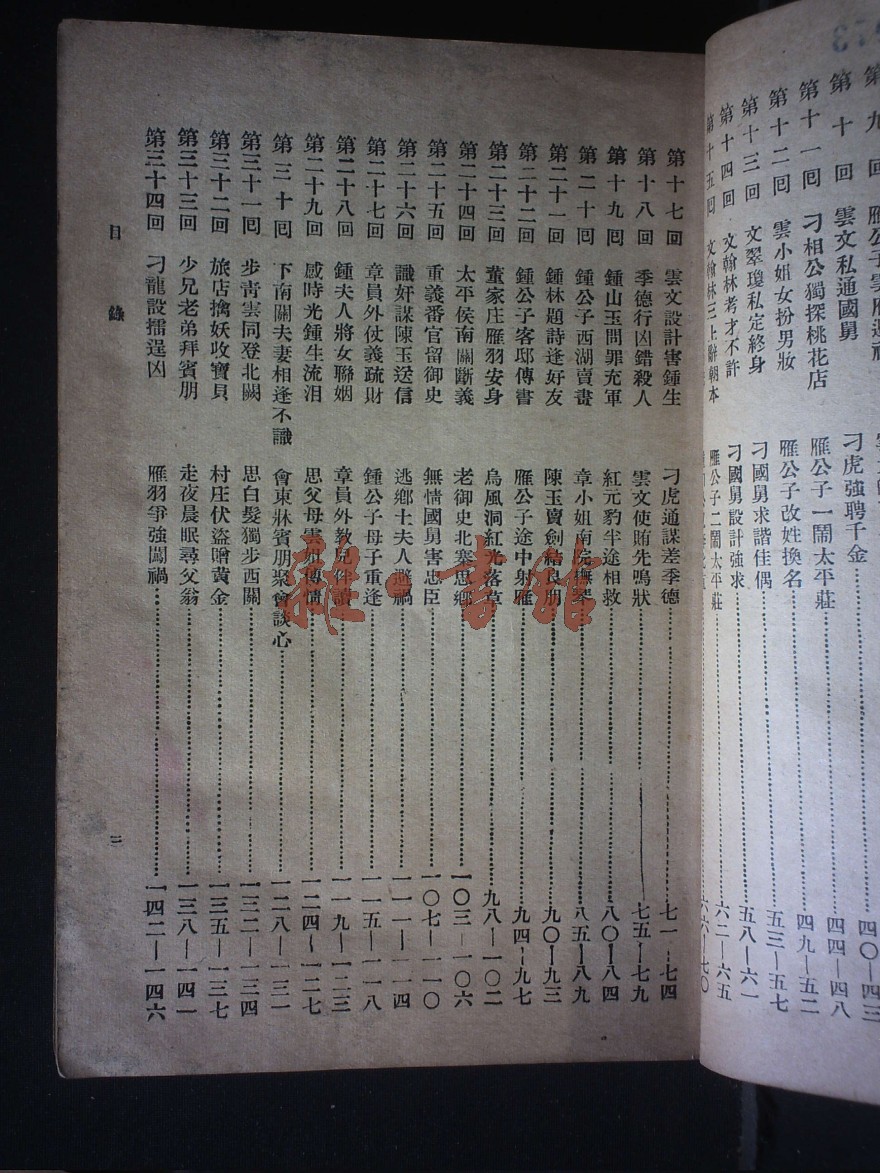 第九回 雁公子雲雁遇禍
第十回 雲文私通國舅 刁虎強聘千金 四〇—四三
第十一回 刁相公獨探桃花店 雁公子一鬧太平莊 四四—四八
第十二回 雲小姐女扮男妝 雁公子改姓換名 四九—五二
第十三回 文翠瓊私定終身 刁國舅求諧佳偶 五三—五七
第十四回 文翰林考才不許 刁國舅設計強求 五八—六一
第十五回 文翰林三上辭朝本 雁公子二鬧太平莊 六二—六五
六六—七〇
第十七回 雲文設計害鍾生 刁虎通謀差季德 七一—七四
第十八回 季德行凶錯殺人 雲文使賄先鳴狀 七五—七九
第十九回 鍾山玉問罪充軍 紅元豹半途相救 八〇—八四
第二十回 鍾公子西湖賣畫 章小姐南院撫琴 八五—八九
第二十一回 鍾林題詩逢好友 陳玉賣劍結良朋 九〇—九三
第二十二回 鍾公子客邸傳書 雁公子途中射雁 九四—九七
第二十三回 董家庄雁羽安身 烏風洞紅光落草 九八—一〇二
第二十四回 太平侯南關斷義 老御史北寨思鄉 一〇三—一〇六
第二十五回 重義番官留御史 無情國舅害忠臣 一〇七—一一〇
第二十六回 識奸謀陳玉送信 逃鄉土夫人避禍 一一一—一一四
第二十七回 章員外仗義疏財 鍾公子母子重逢 一一五—一一八
第二十八回 鍾夫人將女聯姻 章員外教兒伴讀 一一九—一二三
第二十九回 感時光鍾生流泪 思父母雲姐傳情 一二四—一二七
第三十回 下南關夫妻相逢不識 會東牀賓朋聚會談心 一二八—一三一
第三十一回 步青雲同登北闕 思白髮獨步西關 一三二—一三四
第三十二回 旅店擒妖收寶貝 村庄伏盜贈黃金 一三五—一三七
第三十三回 少兄老弟拜賓朋 走夜晨眠尋父翁 一三八—一四一
第三十四回 刁龍設擂逞凶 雁羽爭強闖禍 一四二—一四六
目錄 二
雜·書館